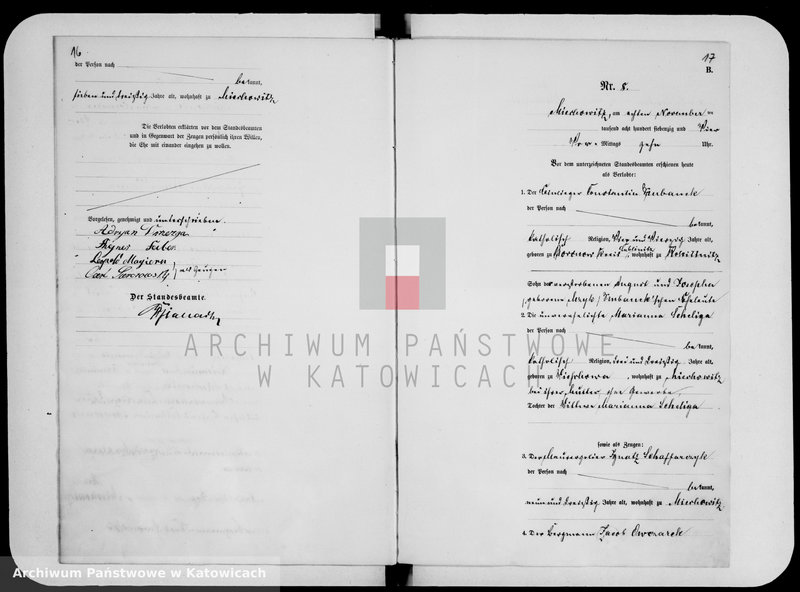 16
der Person nach
bekannt,
sieben und dreißig Jahre alt, wohnhaft zu Miechowitz
Die Verlobten erklärten vor dem Standesbeamten
und in Gegenwart der Zeugen persönlich ihren Willen,
die Ehe mit einander eingehen zu wollen.
Vorgelesen, genehmigt und unterschrieben.
Adryan
Agnes
Leopold Magiera
Carl als Zeugen
Der Standesbeamte.
17
B.
Nr. 8.
Miechowitz, am achten November
tausend acht hundert siebenzig und Vier
Vor Mittags zehn Uhr.
Vor dem unterzeichneten Standesbeamten erschienen heute
als Verlobte:
1. Der Constantin
der Person nach
bekannt,
katholisch Religion, Vier und Vierzig Jahre alt,
geboren zu Kreis Lublinitz, wohnhaft zu
Sohn der verstorbenen August und Josepha
geborene Eheleute
2. Die unverehelichte Marianna Scheliga
der Person nach
bekannt,
katholisch Religion, drei und dreißig Jahre alt,
geboren zu Wieschowa, wohnhaft zu Miechowitz
bei ihrer Mutter, ohne Gewerbe,
Tochter der Wittwe Marianna Scheliga
sowie als Zeugen:
3. Der Ignatz Schaffarczyk
der Person nach
bekannt,
neun und dreißig Jahre alt, wohnhaft zu Miechowitz
4. Der Bergmann Jacob Owczarek
ARCHIWUM PAŃSTWOWE
W KATOWICACH
Archiwum Państwowe w Katowicach